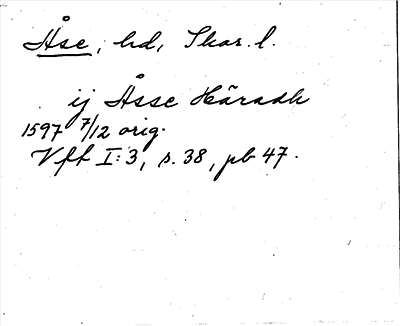 Åse, hd, Skar. l.
ij Åsse Häradh
1597 7/12 orig.
Vft I:3, s. 38, pb 47.